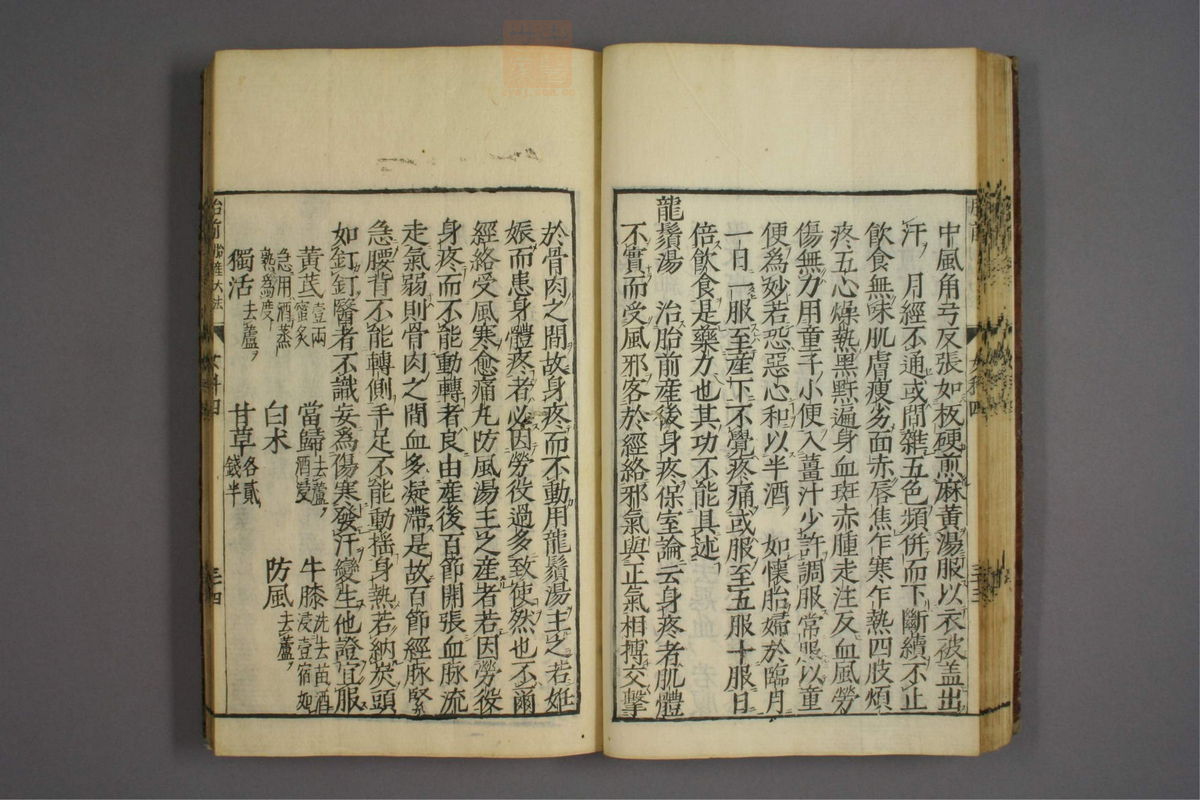 中風角弓反張如板硬煎麻黃湯服以衣被盖出
汗 月經不通或間雜五色頻併而下斷續不止
飲食無味肌膚瘦劣面赤唇焦乍寒乍熱四肢煩
疼五心燥熱黑䵟遍身血斑赤腫走注反血風勞
傷無力用童子小便入薑汁少許調服常服以童
便為妙若恐惡心和以半酒 如懷胎婦於臨月
一日一服至產下不覺疼痛或服至五服十服日
倍飲食是藥力也其功不能具述
龍鬚湯 治胎前産後身疼保室論云身疼者肌體
不實而受風邪客於經絡邪氣與正氣相搏交擊
於骨肉之間故身疼而不動用龍鬚湯主之若姙
娠而患身體疼者必因勞役過多致使然也不爾
經絡受風寒愈痛尢防風湯主之産者若因勞役
身疼而不能動轉者良由産後百節開張血脉流
走氣弱則骨肉之間血多凝滯是故百節經脉緊
急腰背不能轉側手足不能動揺身熱若納炭頭
如釘釘醫者不識妄爲傷寒發汗變生他證宜服
黃芪壹兩蜜炙 當歸去蘆酒浸 牛膝洗去苗酒浸壹宿如
急用酒蒸熟爲度 白朮 防風去蘆
獨活去蘆 甘草各貳錢半
女科四
三四